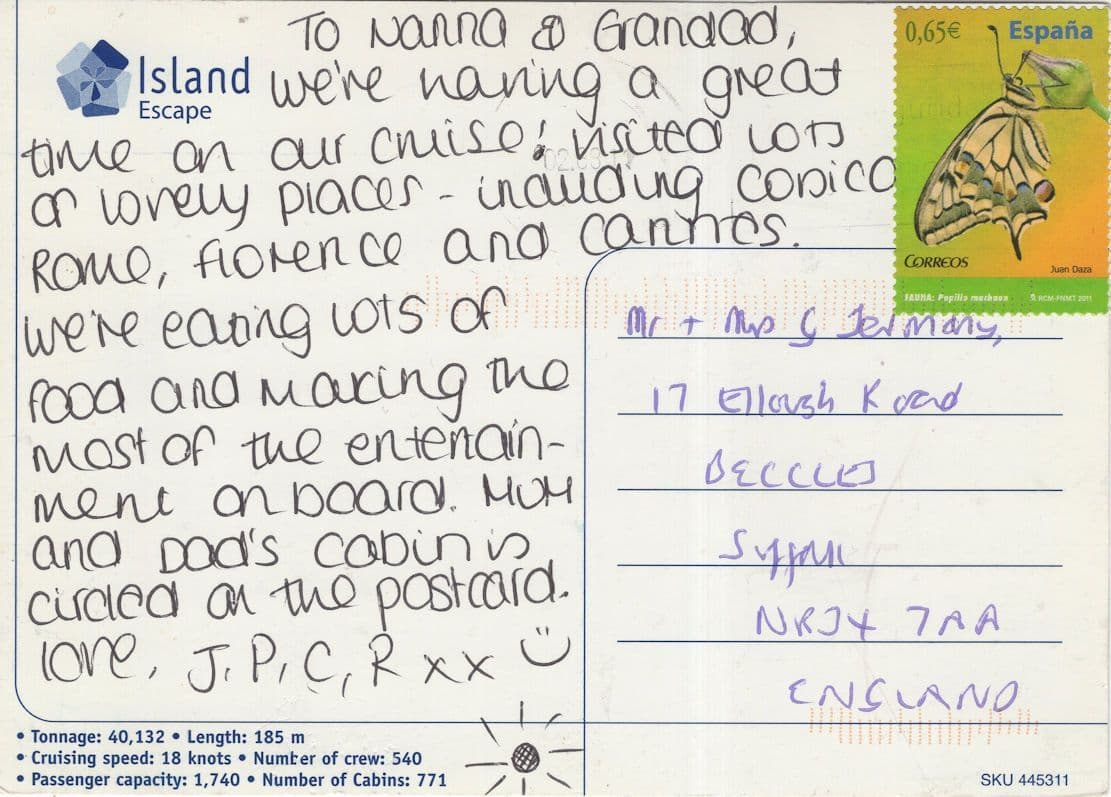 To Nanna & Grandad,
Island
Escape
we're having a great
time on our cruise! visited lots
of lovely places - including Corsica
Rome, Florence and Cannes.
We're eating lots of
food and making the
most of the entertain-
ment on board. Mum
and Dad's cabin is
circled on the postcard.
love, J, P, C, R xx
0,65€ España
CORREOS
Juan Daza
FAUNA: Papilio machaon RCM-FNMT 2011
Mr + Mrs G Jermany,
17 Ellough Road
BECCLES
Suffolk
NR34 7AA
ENGLAND
• Tonnage: 40,132 • Length: 185 m
• Cruising speed: 18 knots • Number of crew: 540
• Passenger capacity: 1,740 • Number of Cabins: 771
SKU 445311